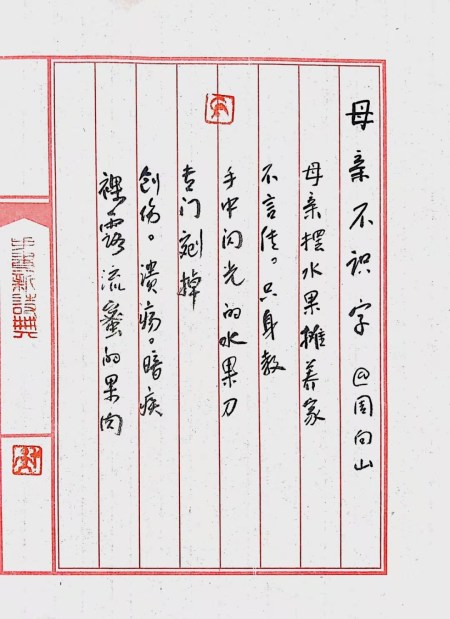 母亲不识字 @周向山
母亲摆水果摊养家
不言传。只身教
手中闪光的水果刀
专门剜掉
创伤。溃疡。暗疾
裸露流蜜的果肉
手书新诗典